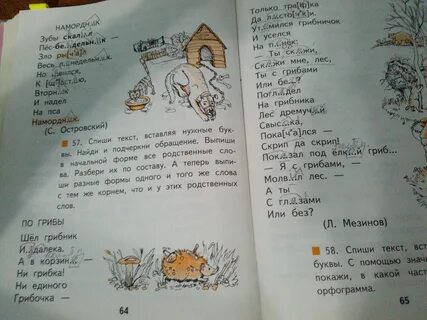 НАМОРДН..К
Зубы скал..л
Пёс-бе..дельн..к
Зло ры[ч'а]л
Весь п..недельн..к
Но ..вился
К [щ]аст..ю
Вторн..к
И надел
На пса
Намордн..к.
(С. Островский)
57. Спиши текст, вставляя нужные бук-
вы. Найди и подчеркни обращение. Выпиши
в начальной форме все родственные сло-
ва. Разбери их по составу. А теперь выпи-
ши разные формы одного и того же слова
с тем же корнем, что и у этих родственных
слов.
ПО ГРИБЫ
Шёл грибник
И..далека.
А в корзин..
Ни грибка!
Ни единого
Грибочка —
64
Только тра[ф]ка
Да л..сто[ч']к..
Ут..мился грибничок
И уселся
На п..нёк:
— Ты ск..жи,
Ск..жи мне, лес,
Ты с грибами
Или без?
Погл..дел
На грибника
Лес дремуч..й
Свыс..ка,
Пока[ч'а]лся —
Скрип да скрип!
Пок..зал под ёлк..й гриб...
— Я с грибами, —
Молв..л лес. —
А ты
С гл..зами
Или без?
(Л. Мезинов)
58. Спиши текст, вставляя
буквы. С помощью знач
покажи, в какой част
орфограмма.
65